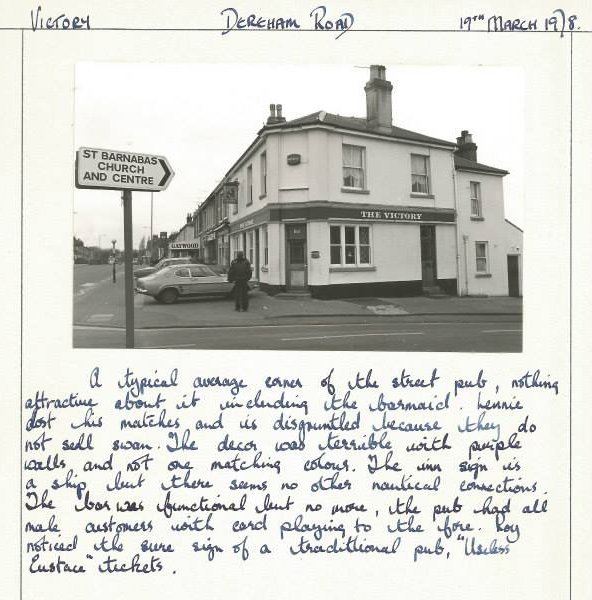 VICTORY DEREHAM ROAD 19TH MARCH 1978.
ST BARNABAS
CHURCH
AND CENTRE
GAYWOOD
THE VICTORY
A typical average corner of the street pub, nothing
attractive about it including the barmaid. Lennie
lost his matches and is disgruntled because they do
not sell swan. The decor was terrible with purple
walls and not one matching colour. The inn sign is
a ship but there seems no other nautical connections.
The bar was functional but no more, the pub had all
male customers with card playing to the fore. Roy
noticed the sure sign of a traditional pub, "Useless
Eustace" tickets.